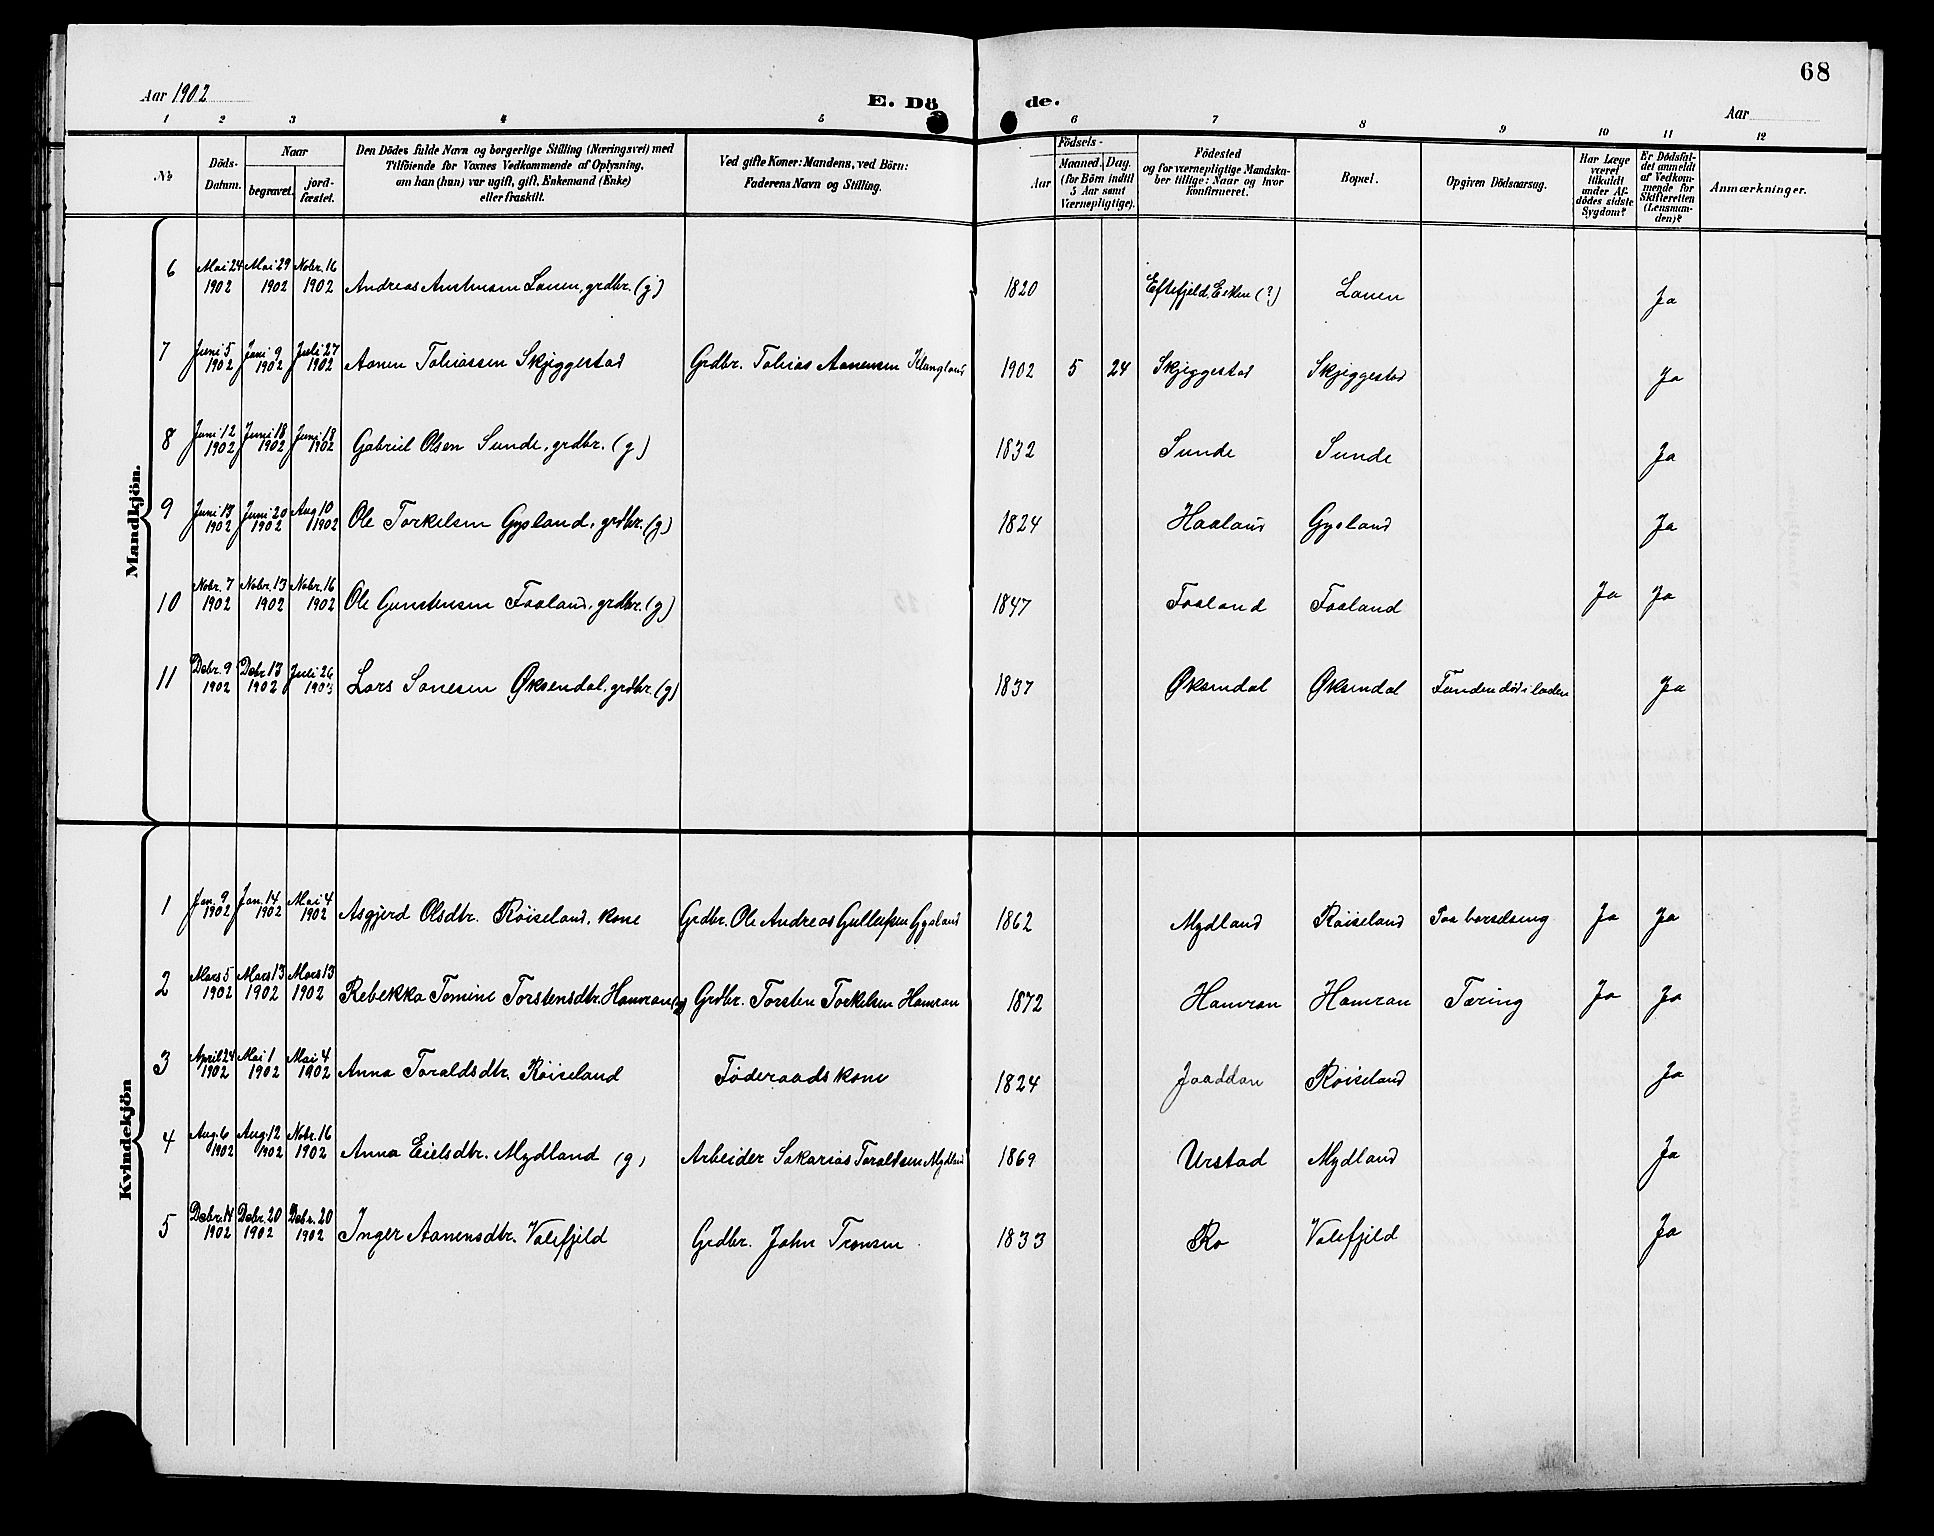 68
Aar 1902
E. Dö de.
Aar
1 2 3 4 5 6 7 8 9 10 11 12
№
Döds-
Datum.
Naar
begravet.
jord-
fæstet.
Den Dödes fulde Navn og borgerlige Stilling (Næringsvei) med
Tilföiende for Voxnes Vedkommende af Oplysning,
om han (hun) var ugift, gift, Enkemand (Enke)
eller fraskilt.
Ved gifte Koner: Mandens, ved Börn:
Faderens Navn og Stilling.
Födsels-
Aar
Maaned. Dag.
(for Börn indtil
5 Aar samt
Værnepligtige).
Födested
og for værnepligtige Mandska-
ber tillige: Naar og hvor
konfirmeret.
Bopæl.
Opgiven Dödsaarsag.
Har Læge
været
tilkaldt
under Af-
dödes sidste
Sygdom?
Er Dödsfal-
det anmeldt
af Vedkom-
mende for
Skifteretten
(Lensman-
den)?
Anmærkninger.
Mandkjön.
6 Mai 24 1902 Mai 29 1902 Nobr. 16 1902 Andreas Lauen, grdbr. (g) 1820 Eftefjeld, Eiken (?) Lauen Ja
7 Juni 5 1902 Juni 9 1902 Juli 27 1902 Aanen Tobiassen Skjeggestad Grdbr. Tobias Aanensen Klungland 1902 5 24 Skjeggestad Skjeggestad Ja
8 Juni 12 1902 Juni 18 1902 Juni 18 1902 Gabriel Olsen Sunde, grdbr. (g) 1832 Sunde Sunde Ja
9 Juni 13 1902 Juni 20 1902 Aug 10 1902 Ole Torkelsen Gysland, grdbr. (g) 1824 Haaland Gysland Ja
10 Nobr. 7 1902 Nobr. 13 1902 Nobr. 16 1902 Ole Gunstensen Faaland, grdbr. (g) 1847 Faaland Faaland Ja Ja
11 Debr. 9 1902 Debr. 13 1902 Juli 26 1903 Lars Øksendal, grdbr. (g) 1837 Øksendal Øksendal Funden död i laden Ja
Kvindekjön
1 Jan. 9 1902 Jan. 14 1902 Mai 4 1902 Asgjerd Olsdtr. Röiseland, kone Grdbr. Ole Andreas Gullufsen Gysland 1862 Mydland Röiseland Paa barselseng Ja Ja
2 Mars 5 1902 Mars 13 1902 Mars 13 1902 Rebekka Tomine Torstensdtr. Hamran Grdbr. Torsten Torkelsen Hamran 1872 Hamran Hamran Tæring Ja Ja
3 April 24 1902 Mai 1 1902 Mai 4 1902 Anna Toraldsdtr. Röiseland Föderaadskone 1824 Jaaddan Röiseland Ja
4 Aug. 6 1902 Aug. 12 1902 Nobr. 16 1902 Anna Eielsdtr. Mydland (g) Arbeider Sakarias Toraldsen Mydland 1869 Urstad Mydland Ja
5 Debr. 14 1902 Debr. 20 1902 Debr. 20 1902 Inger Aanensdtr. Valefjeld Grdbr. John Tronsen 1833 Ro Valefjeld Ja